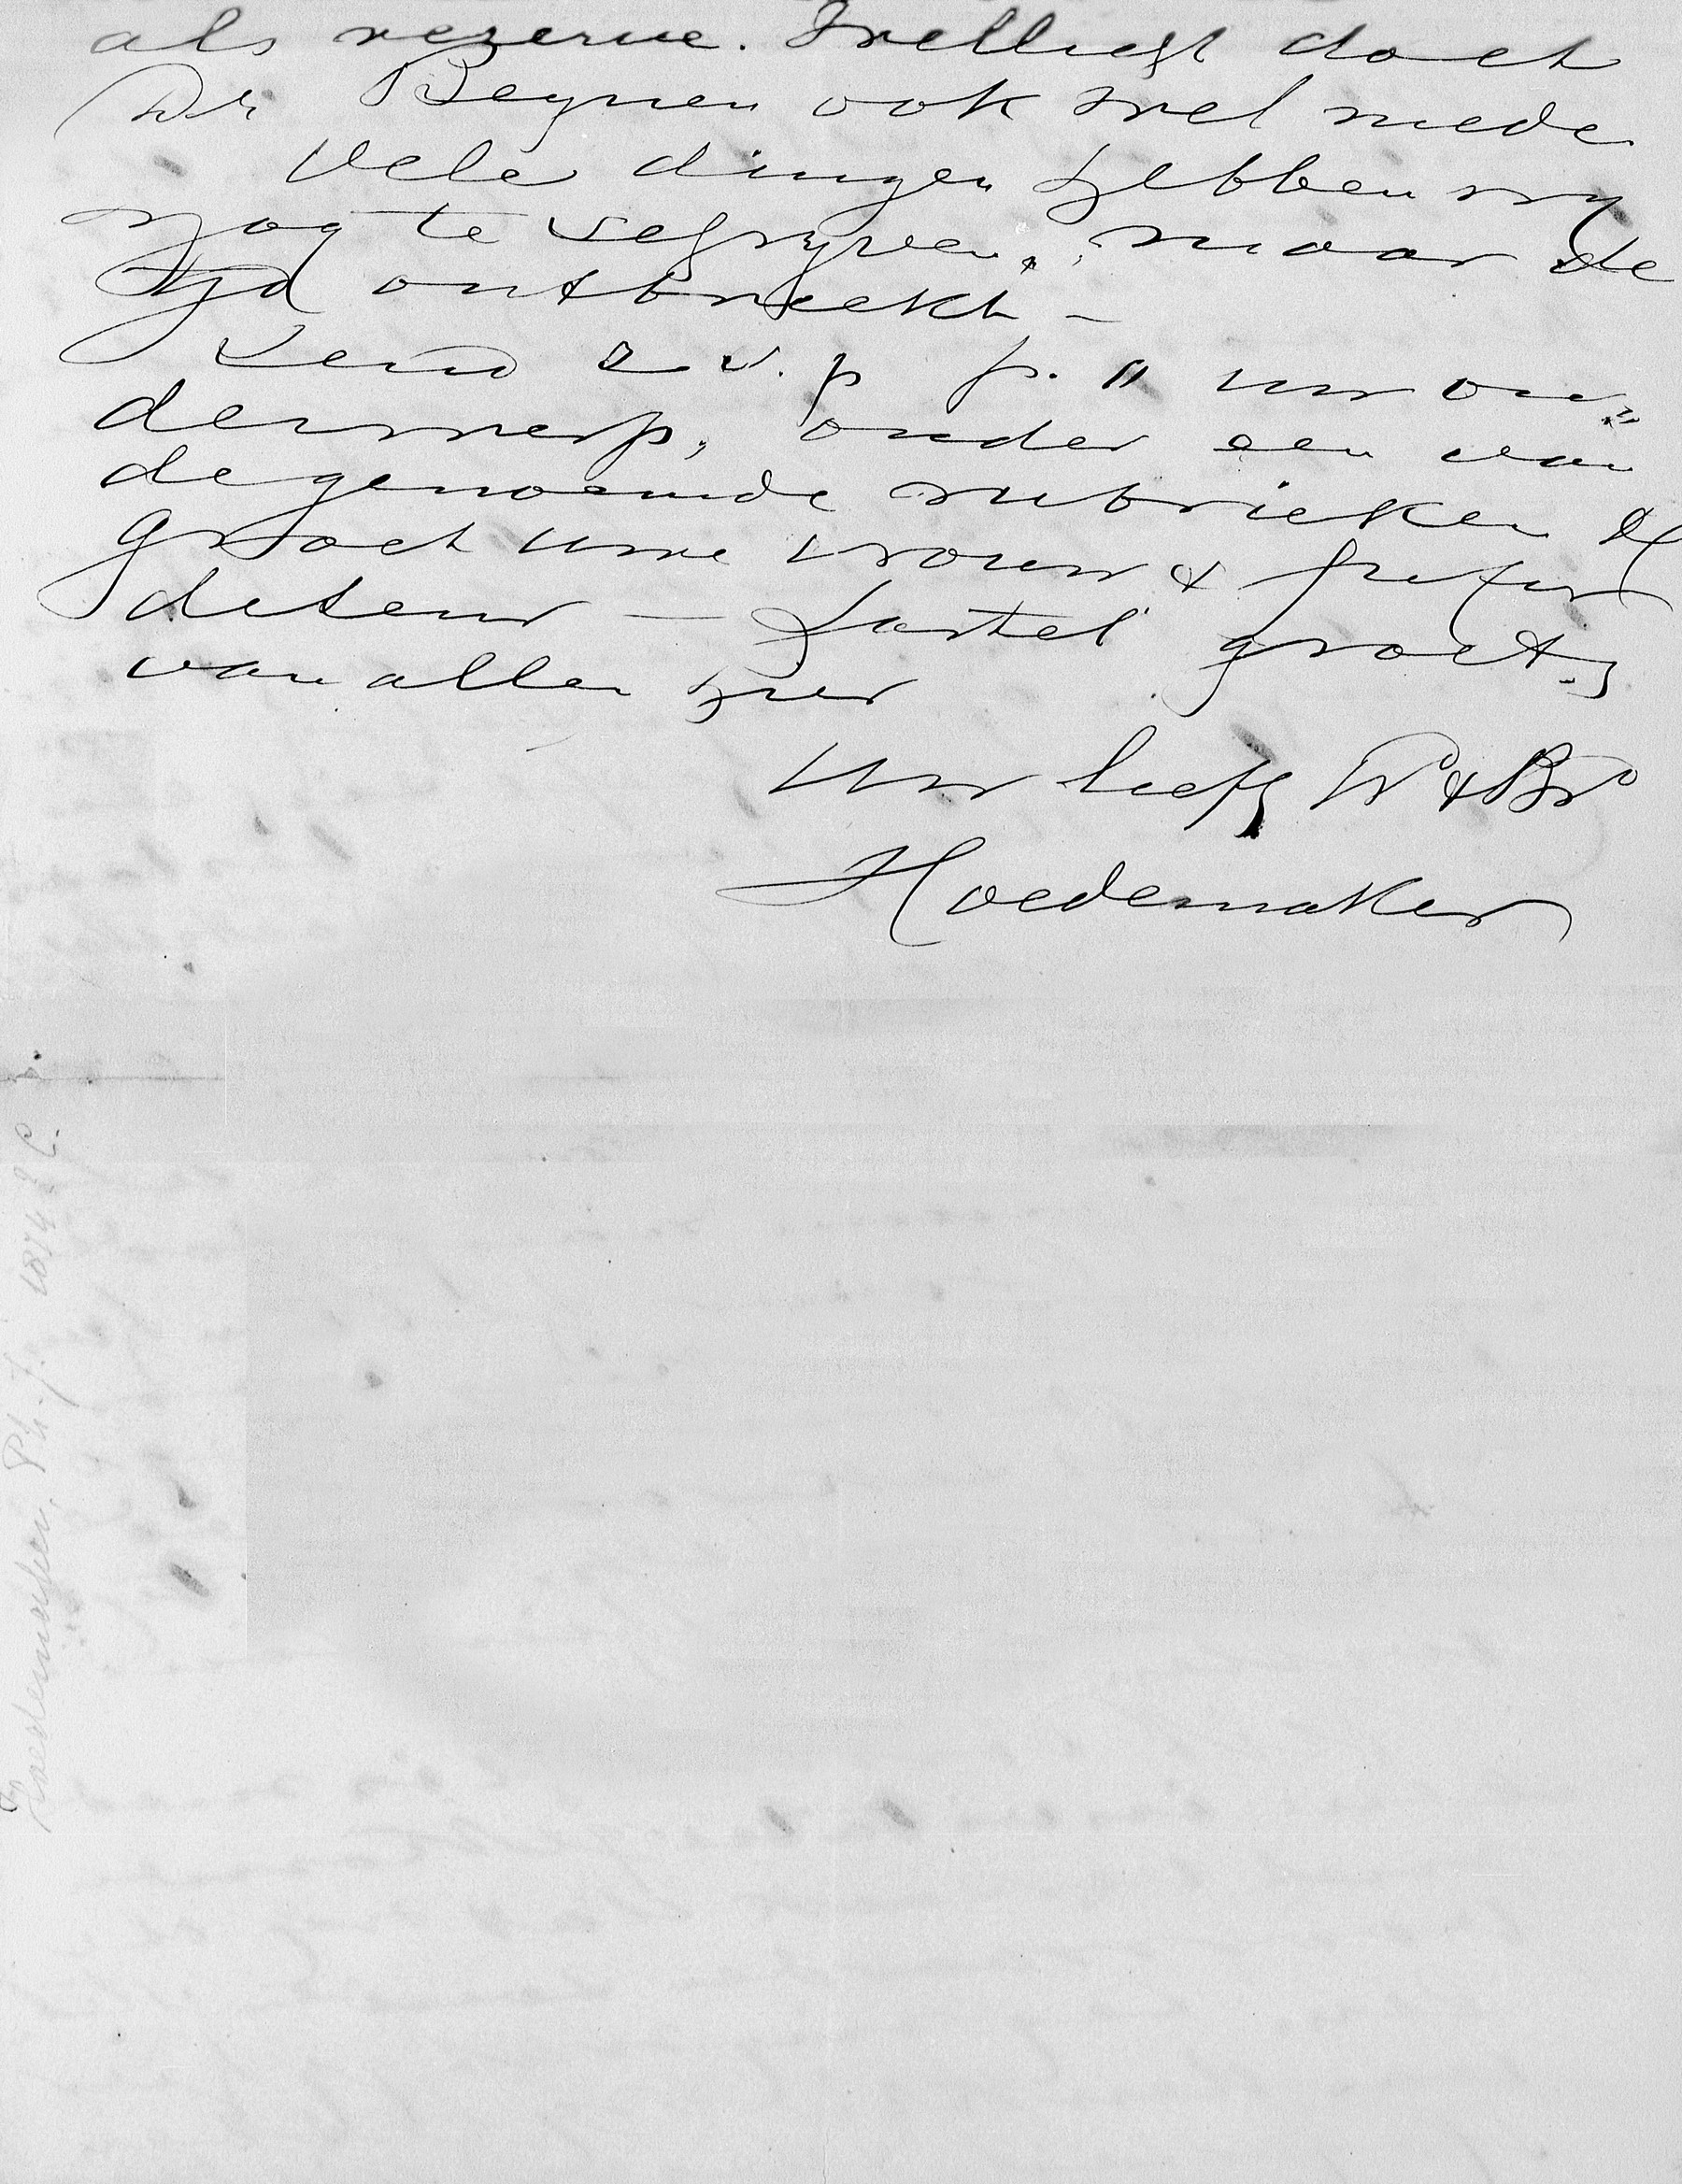 als rezerve. Wellicht doet
Dr Beynen ook wel mede
Vele dingen hebben wy
nog te schryven, maar de
tyd ontbreekt -
Zend s.v.p p. " uw on"
derwerp, onder een van
de genoemde rubrieken &
groet uwe vrouw &
- Hartel groet
van allen hier
Uw liefh Vr & Br
Hoedemaker
Hoedemaker, Ph. J. 1874 8 C.